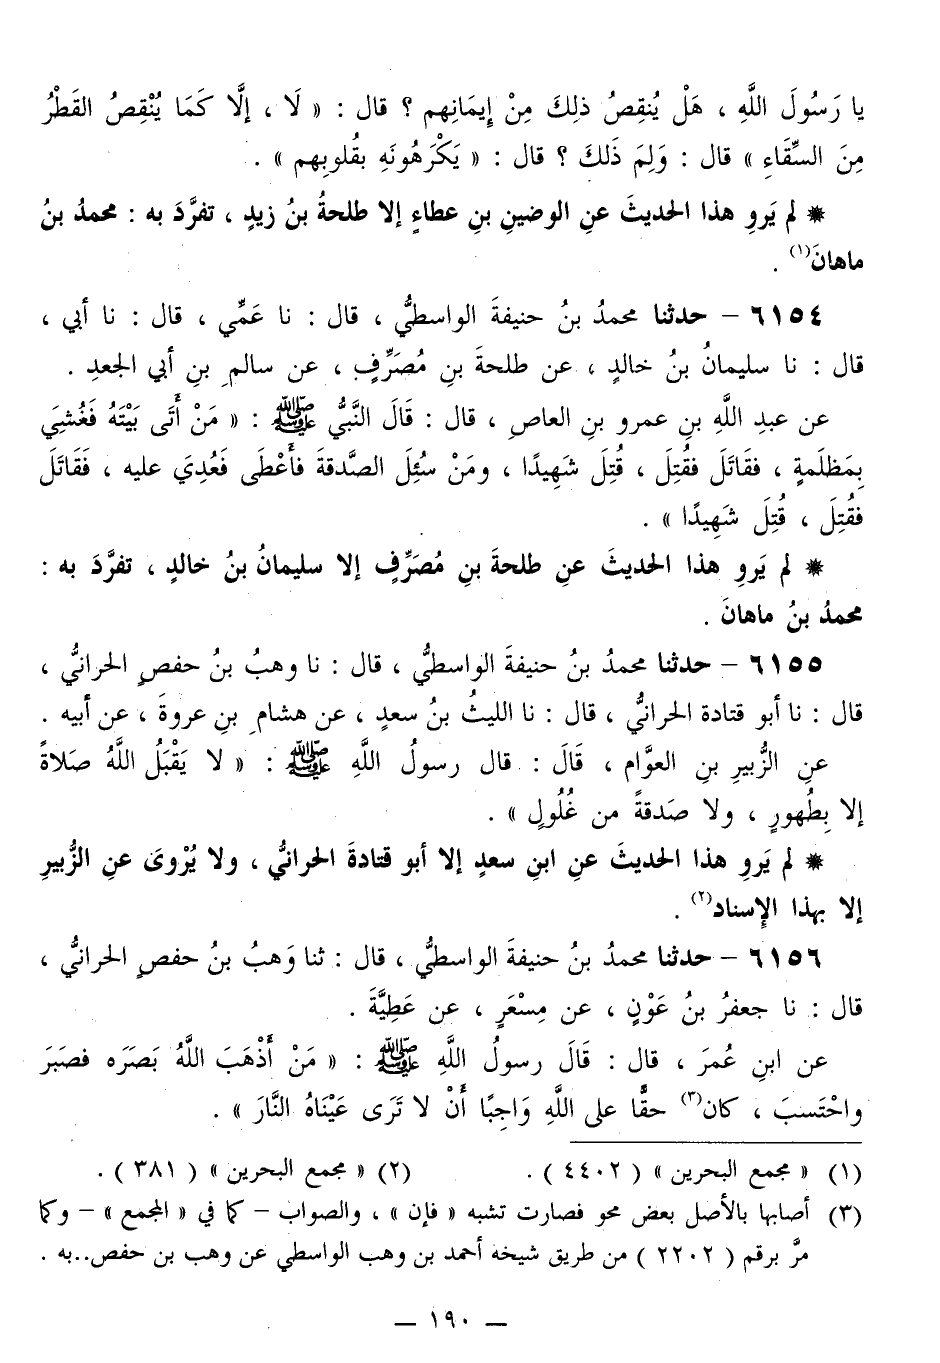 يا رَسُولَ اللَّهِ ، هَلْ يُنقِصُ ذلِكَ مِنْ إِيمَانِهم ؟ قال : « لَا ، إلَّا كَمَا يُنْقِصُ القَطْرُ
مِنَ السِّقَاءِ » قال : وَلِمَ ذَلكَ ؟ قال : « يَكْرَهُونَهِ بقُلوبِهم » .
* لم يَروِ هذا الحديثَ عنِ الوضينِ بنِ عطاءٍ إلا طلحةُ بنُ زيدٍ ، تفرَّدَ به : محمدُ بنُ
ماهانَ(١) .
٦١٥٤ – حدثنا محمدُ بنُ حنيفةَ الواسطيُّ ، قال : نا عَمِّي ، قال : نا أبي ،
قال : نا سليمانُ بنُ خالدٍ ، عن طلحةَ بنِ مُصَرِّفٍ ، عن سالمِ بنِ أبي الجعدِ .
عن عبدِ اللَّهِ بنِ عمرو بنِ العاصِ ، قال : قَالَ النَّبيُّ ﷺ : « مَنْ أَتَى بَيْتَهُ فَغُشِيَ
بِمَظلَمةٍ ، فقَاتَلَ فقُتِلَ ، قُتِلَ شَهِيدًا ، ومَنْ سُئِلَ الصَّدقةَ فأَعْطَى فَعُدِيَ عليه ، فَقَاتَلَ
فقُتِلَ ، قُتِلَ شَهِيدًا » .
* لم يَروِ هذا الحديثَ عن طلحةَ بنِ مُصَرِّفٍ إلا سليمانُ بنُ خالدٍ ، تفرَّدَ به :
محمدُ بنُ ماهانَ .
٦١٥٥ – حدثنا محمدُ بنُ حنيفةَ الواسطيُّ ، قال : نا وهبُ بنُ حفصٍ الحرانيُّ ،
قال : نا أبو قتادة الحرانيُّ ، قال : نا الليثُ بنُ سعدٍ ، عن هشامِ بنِ عروةَ ، عن أبيه .
عنِ الزُّبيرِ بنِ العوَّام ، قَالَ : قال رسولُ اللَّهِ ﷺ : « لا يَقْبَلُ اللَّهُ صَلاةً
إلا بِطُهورٍ ، ولا صَدقةً من غُلُولٍ » .
* لم يَروِ هذا الحديثَ عن ابنِ سعدٍ إلا أبو قتادةَ الحرانيُّ ، ولا يُرْوىَ عنِ الزُّبيرِ
إلا بهذا الإِسناد(٢) .
٦١٥٦ – حدثنا محمدُ بنُ حنيفةَ الواسطيُّ ، قال : ثنا وَهبُ بنُ حفصٍ الحرانيُّ ،
قال : نا جعفرُ بنُ عَوْنٍ ، عن مِسْعَرٍ ، عن عَطِيَّةَ .
عن ابنِ عُمرَ ، قال : قَالَ رسولُ اللَّهِ ﷺ : « مَنْ أَذْهَبَ اللَّهُ بَصَرَه فصَبَرَ
واحْتَسبَ ، كان(٣) حقًّا على اللَّهِ وَاجِبًا أَنْ لا تَرَى عَيْنَاهُ النَّارَ » .
(١) « مجمع البحرين » ( ٤٤٠٢ ) . (٢) « مجمع البحرين » ( ٣٨١ ) .
(٣) أصابها بالأصل بعض محو فصارت تشبه « فإن » ، والصواب – كما في « المجمع » – وكما
مرَّ برقم ( ٢٢٠٢ ) من طريق شيخه أحمد بن وهب الواسطي عن وهب بن حفص..به .
– ١٩٠ –